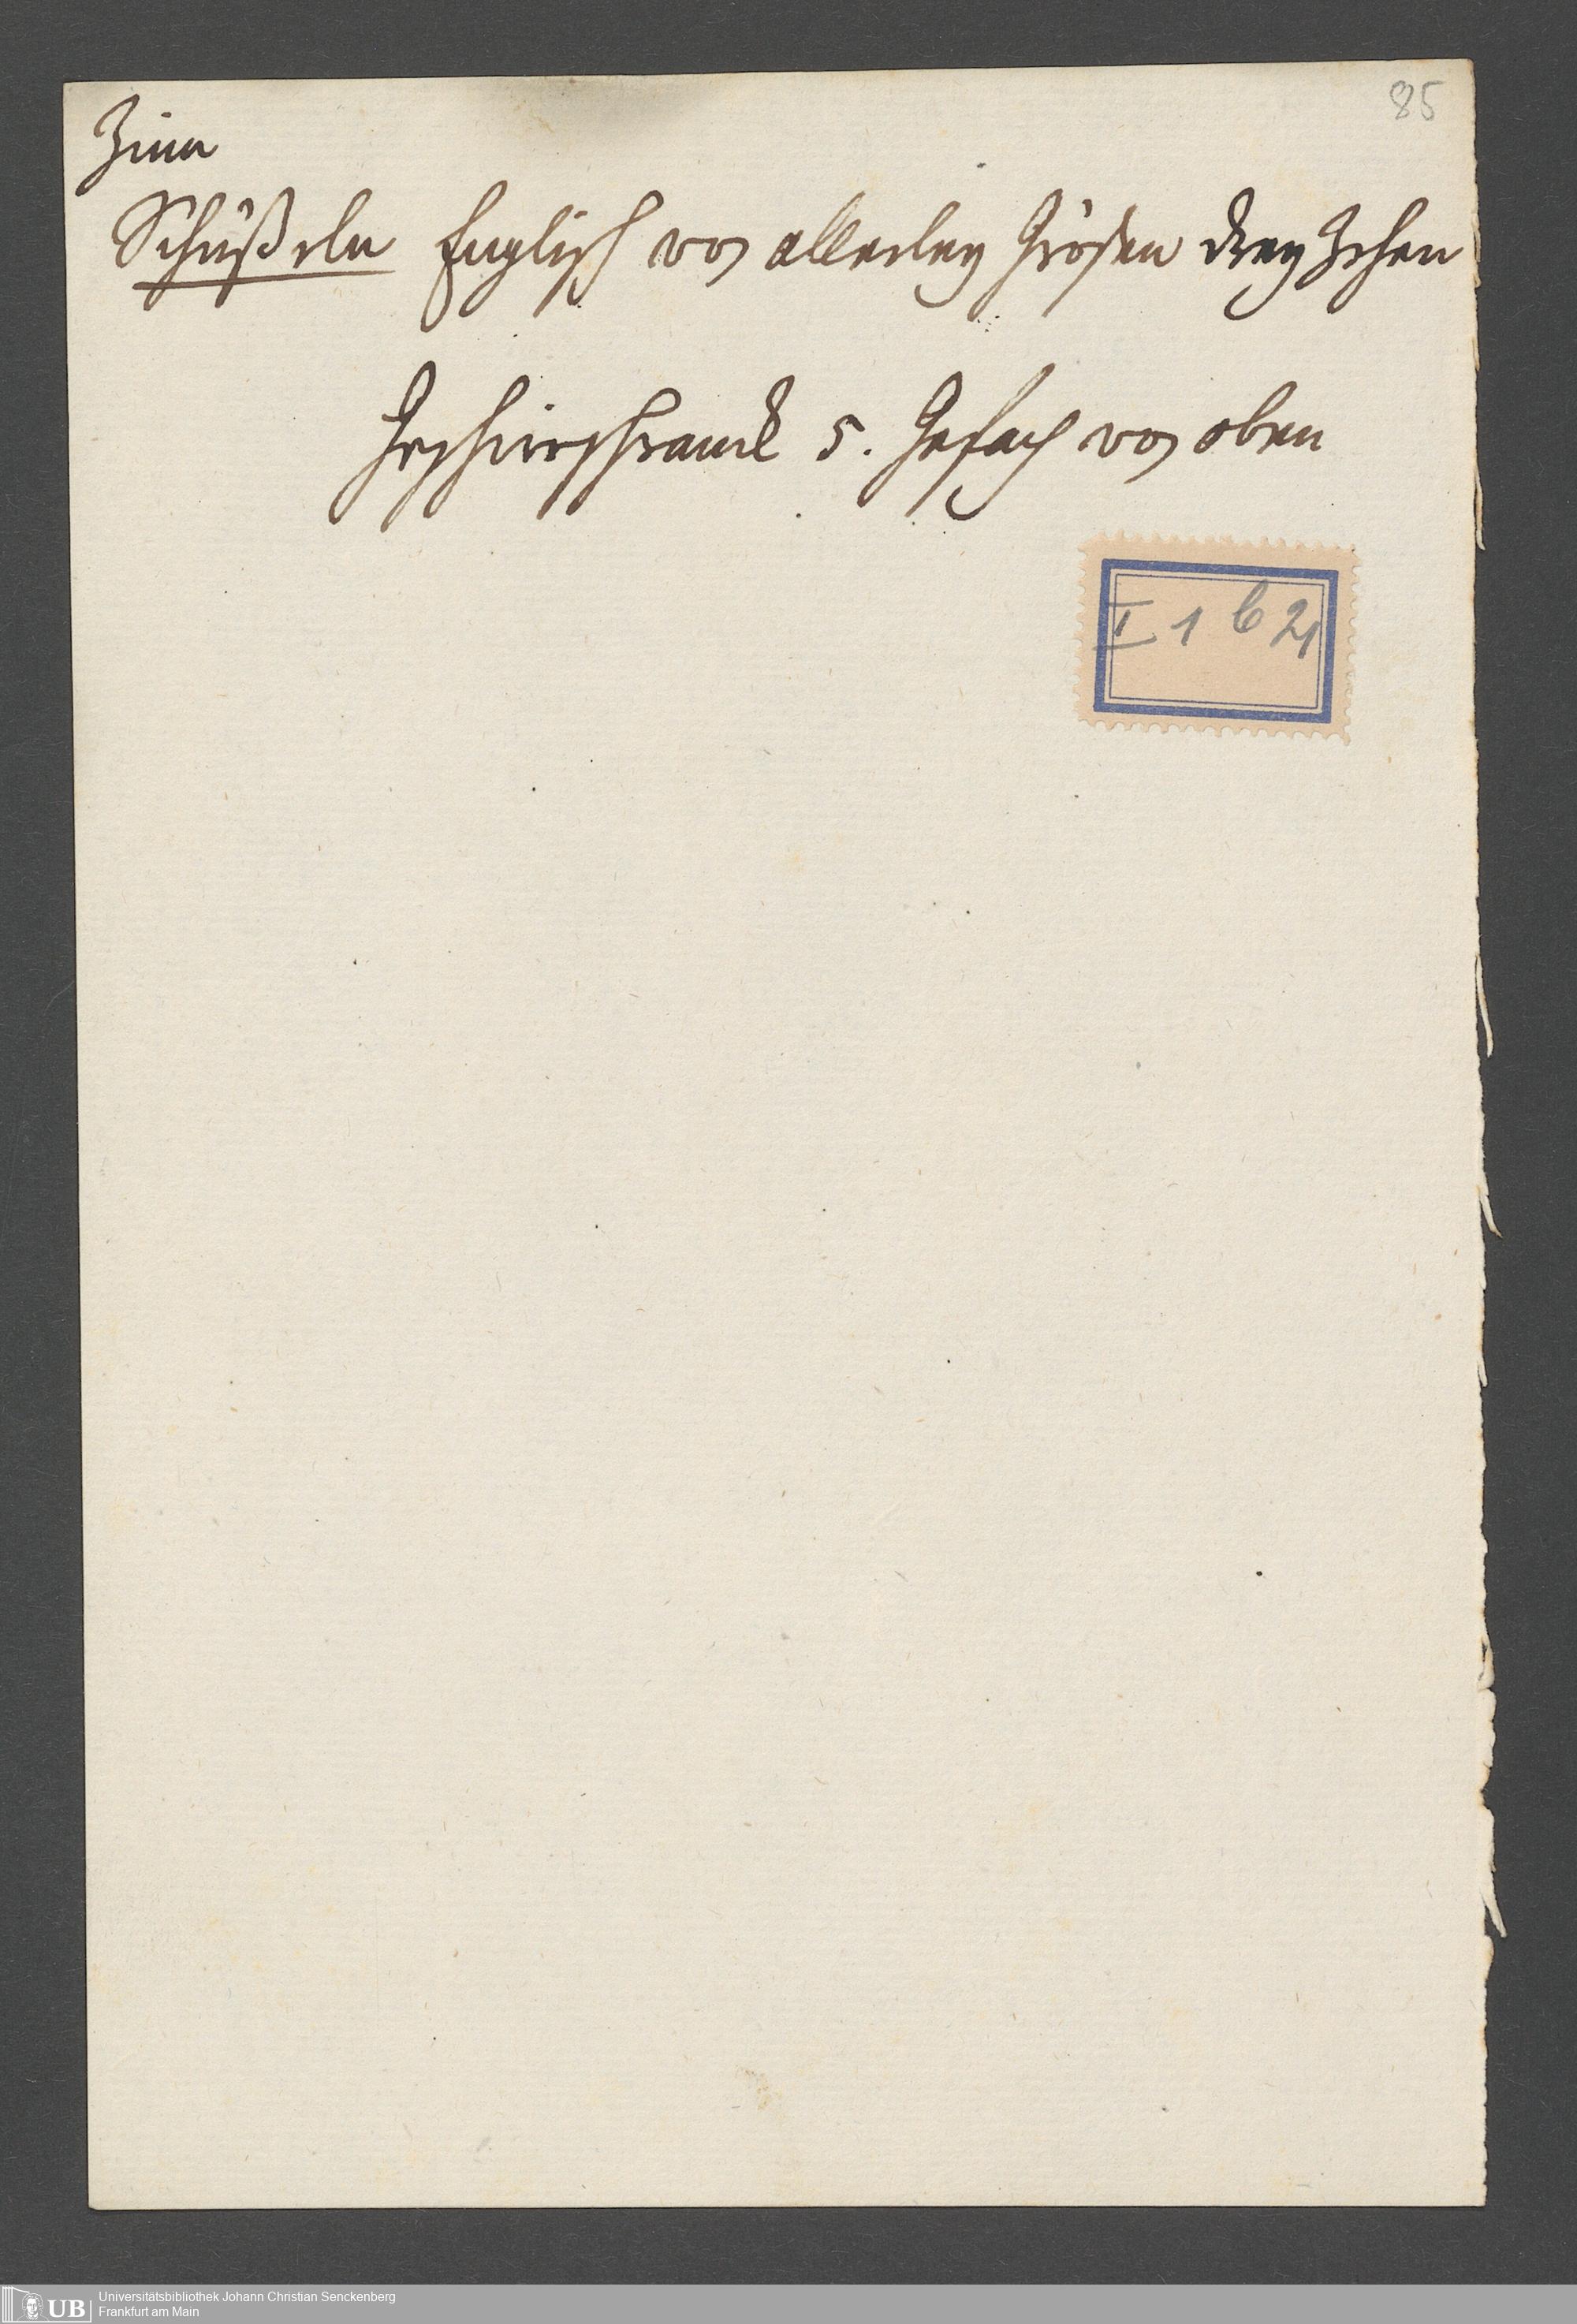 85
Zinn
Schüßeln Englisch von allerley Grösen dreyzehen
Geschirrschranck 5. Gefach von oben
I 1 b 21
UB Universitätsbibliothek Johann Christian Senckenberg
Frankfurt am Main